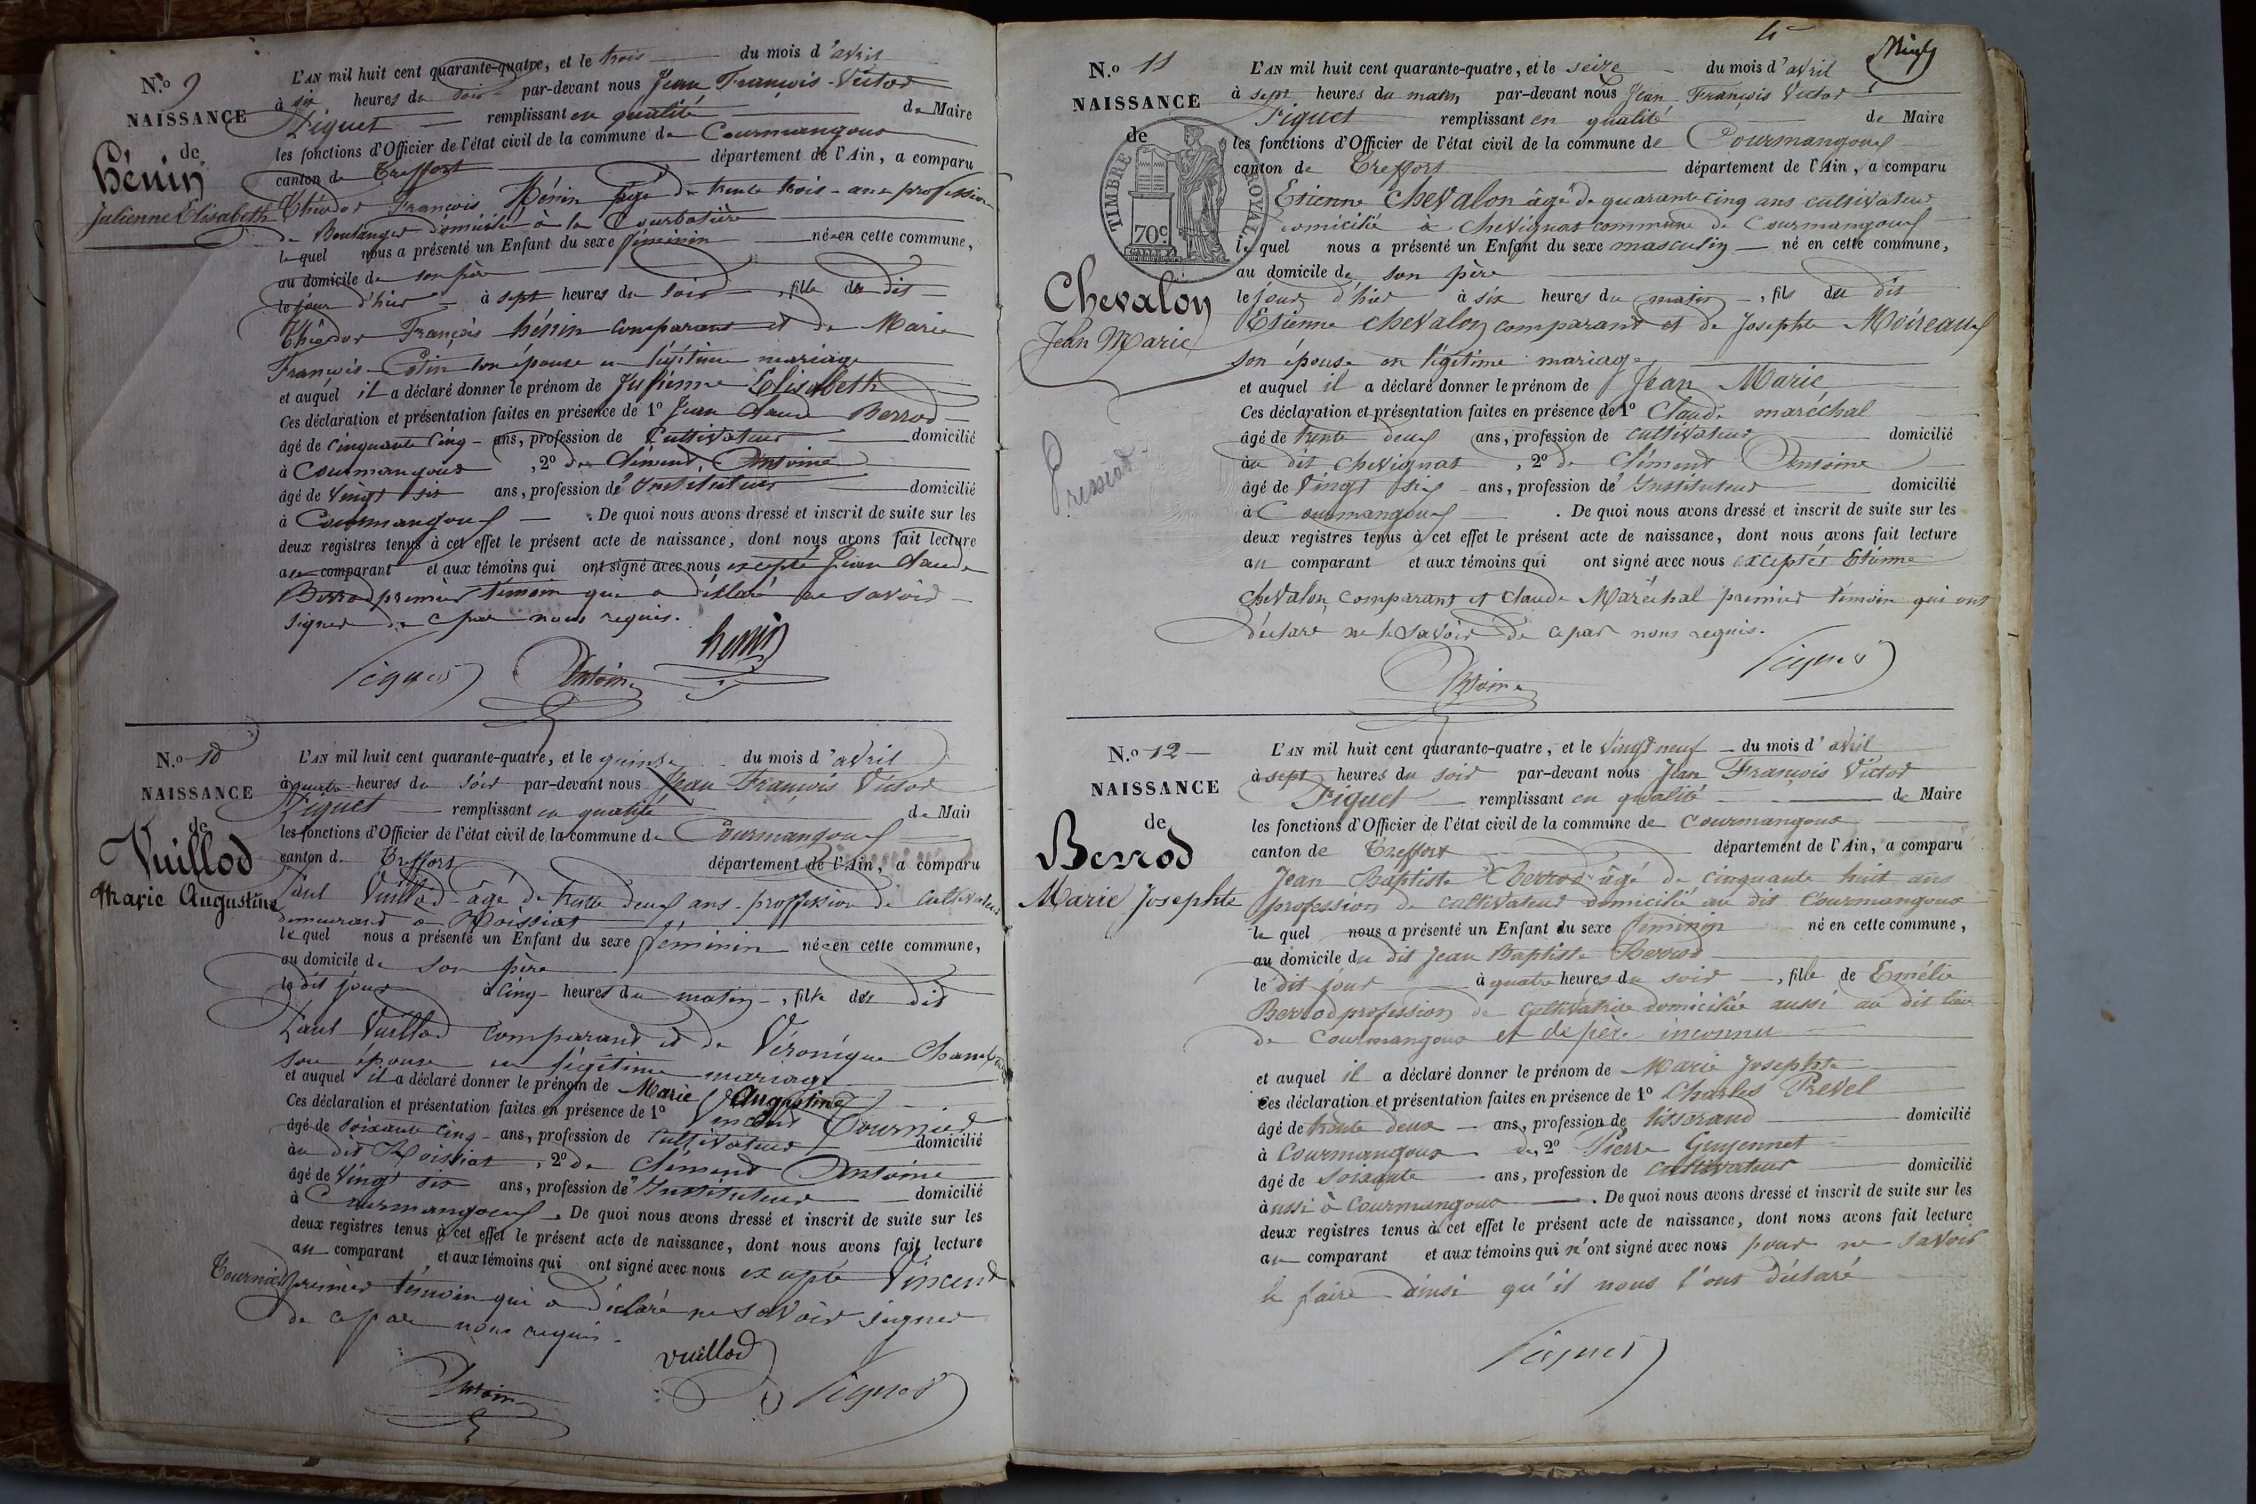 N.o 9
NAISSANCE
de
Hénin
Julienne Elisabeth
L'AN mil huit cent quarante-quatre, et le trois du mois d'avril
à six heures du soir par-devant nous Jean François Victor
Piquet remplissant en qualité de Maire
les fonctions d'Officier de l'état civil de la commune de Courmangoux
canton de Treffort département de l'Ain, a comparu
Théodor François Hénin âgé de trente trois ans profession
de Boulanger domicilié à la Courbatière
lequel nous a présenté un Enfant du sexe féminin né en cette commune,
au domicile de son père
le jour d'hier à sept heures du soir, fille du dit
Théodor François hénin comparant et de Marie
François son épouse en légitime mariage
et auquel il a déclaré donner le prénom de Julienne Elisabeth
Ces déclaration et présentation faites en présence de 1o Jean Claude Berrod
âgé de cinquante cinq ans, profession de Cultivateur domicilié
à Courmangoux, 2o de Clément Antoine
âgé de vingt six ans, profession de Instituteur domicilié
à Courmangoux. De quoi nous avons dressé et inscrit de suite sur les
deux registres tenus à cet effet le présent acte de naissance, dont nous avons fait lecture
au comparant et aux témoins qui ont signé avec nous excepté Jean Claude
Berrod premier témoin qui a déclaré ne savoir
signer de ce par nous requis.
Piquet Antoine henin
N.o 10
NAISSANCE
de
Vuillod
Marie Augustine
L'AN mil huit cent quarante-quatre, et le quinze du mois d'avril
à quatre heures du soir par-devant nous Jean François Victor
Piquet remplissant en qualité de Maire
les fonctions d'Officier de l'état civil de la commune de Courmangoux
canton de Treffort département de l'Ain, a comparu
Paul Vuillod âgé de trente deux ans profession de cultivateur
demeurand à Roissiat
lequel nous a présenté un Enfant du sexe féminin né en cette commune,
au domicile de son père
le dit jour à cinq heures du matin, fille du dit
Paul Vuillod comparand et de Véronique
son épouse en légitime mariage
et auquel il a déclaré donner le prénom de Marie Augustine
Ces déclaration et présentation faites en présence de 1o Vincent Tournier
âgé de soixante cinq ans, profession de Cultivateur domicilié
au dit Roissiat, 2o de Clément Antoine
âgé de vingt six ans, profession de Instituteur domicilié
à Courmangoux. De quoi nous avons dressé et inscrit de suite sur les
deux registres tenus à cet effet le présent acte de naissance, dont nous avons fait lecture
au comparant et aux témoins qui ont signé avec nous excepté Vincent
Tournier premier témoin qui a déclaré ne savoir signer
de ce par nous requis.
Antoine vuillod Piquet
4
N.o 11
NAISSANCE
de
TIMBRE ROYAL
70c
Chevalon
Jean Marie
Pressiat
L'AN mil huit cent quarante-quatre, et le seize du mois d'avril
à sept heures du matin par-devant nous Jean François Victor
Piquet remplissant en qualité de Maire
les fonctions d'Officier de l'état civil de la commune de Courmangoux
canton de Treffort département de l'Ain, a comparu
Etienne Chevalon âgé de quarante cinq ans cultivateur
domicilié à Chevignat commune de Courmangoux
lequel nous a présenté un Enfant du sexe masculin né en cette commune,
au domicile de son père
le jour d'hier à six heures du matin, fils du dit
Etienne Chevalon comparant et de Josephte Moireaux
son épouse en légitime mariage
et auquel il a déclaré donner le prénom de Jean Marie
Ces déclaration et présentation faites en présence de 1o Claude maréchal
âgé de trente deux ans, profession de cultivateur domicilié
au dit Chevignat, 2o de Clément Antoine
âgé de vingt six ans, profession de Instituteur domicilié
à Courmangoux. De quoi nous avons dressé et inscrit de suite sur les
deux registres tenus à cet effet le présent acte de naissance, dont nous avons fait lecture
au comparant et aux témoins qui ont signé avec nous exceptés Etienne
Chevalon, comparant et Claude Maréchal premier témoin qui ont
déclaré ne le savoir de ce par nous requis.
Antoine Piquet
N.o 12
NAISSANCE
de
Berrod
Marie Josephte
L'AN mil huit cent quarante-quatre, et le vingt neuf du mois d'avril
à sept heures du soir par-devant nous Jean François Victor
Piquet remplissant en qualité de Maire
les fonctions d'Officier de l'état civil de la commune de Courmangoux
canton de Treffort département de l'Ain, a comparu
Jean Baptiste Berrod âgé de cinquante huit ans
profession de cultivateur domicilié au dit Courmangoux
lequel nous a présenté un Enfant du sexe féminin né en cette commune,
au domicile du dit Jean Baptiste Berrod
le dit jour à quatre heures du soir, fille de Emélie
Berrod profession de cultivatrice domiciliée aussi au dit lieu
de Courmangoux et de père inconnu
et auquel il a déclaré donner le prénom de Marie Josephte
Ces déclaration et présentation faites en présence de 1o Charles Prevel
âgé de trente deux ans, profession de tisserand domicilié
à Courmangoux de, 2o Pierre Guyennet
âgé de soixante ans, profession de cultivateur domicilié
aussi à Courmangoux. De quoi nous avons dressé et inscrit de suite sur les
deux registres tenus à cet effet le présent acte de naissance, dont nous avons fait lecture
au comparant et aux témoins qui n'ont signé avec nous pour ne savoir
le faire ainsi qu'il nous l'ont déclaré
Piquet